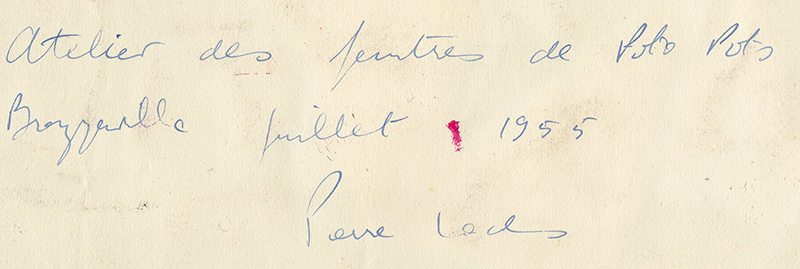 Atelier des peintres de Poto Poto
Brazzaville juillet 1955
Pierre Lods